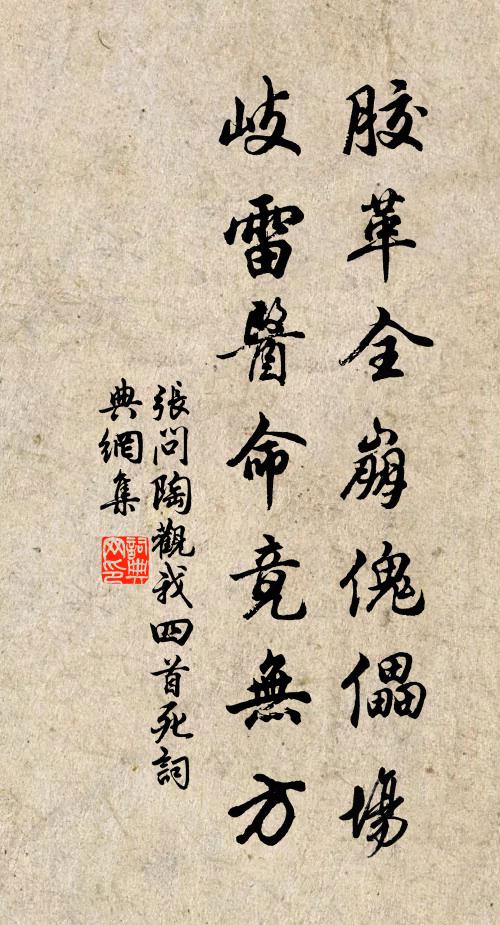 胶革全崩傀儡場
歧雷醫命竟無方
張問陶觀我四首死詞
典網集
詞典
网印